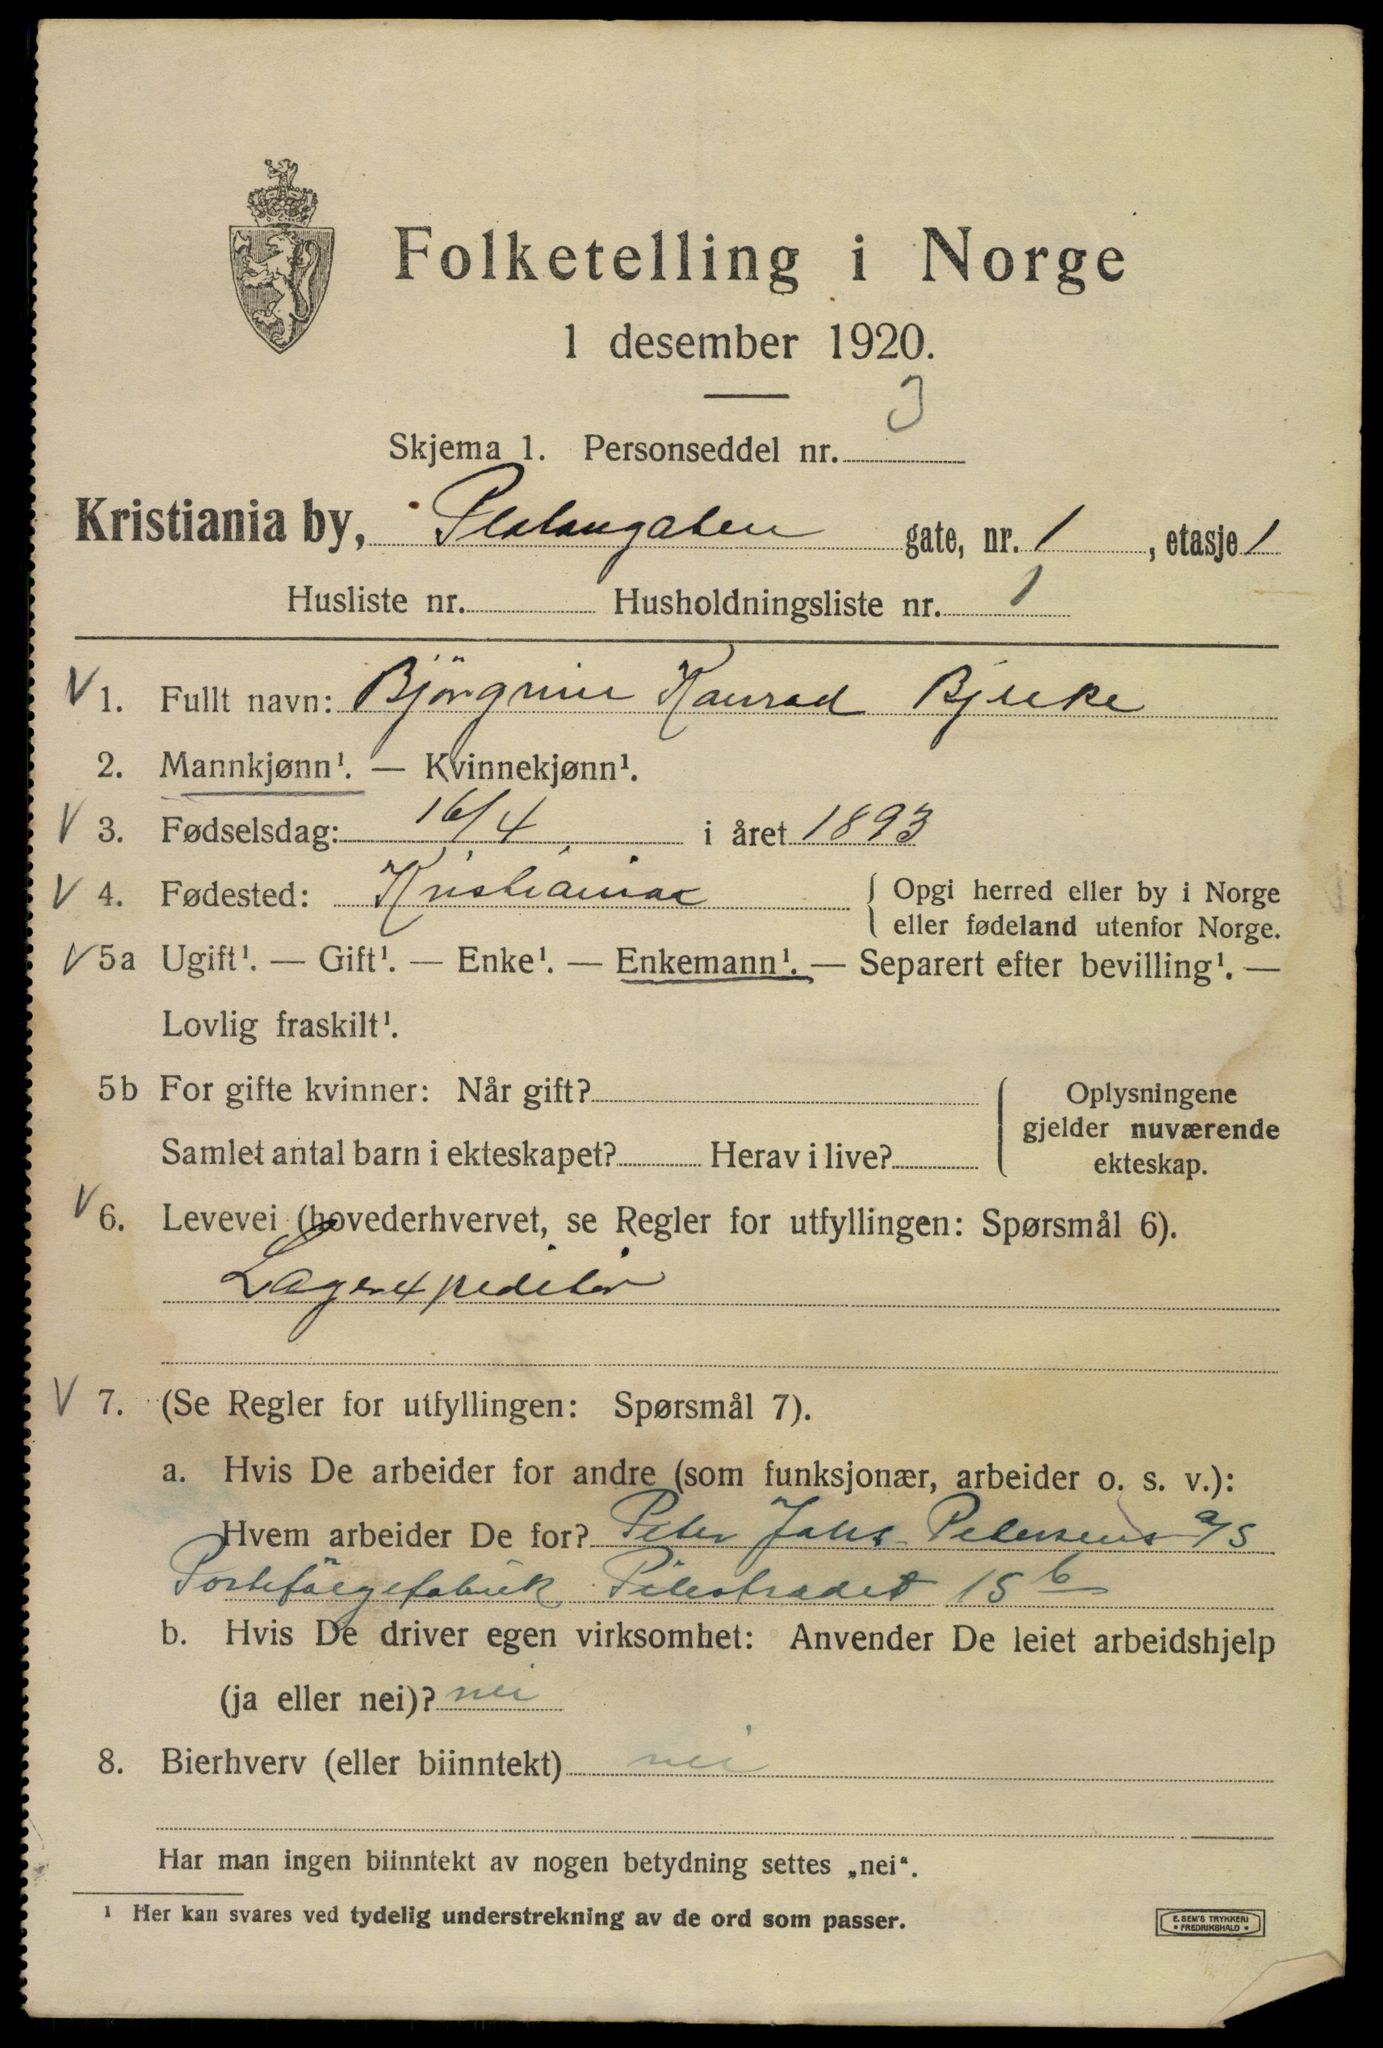 Folketelling i Norge
1 desember 1920.
Skjema 1. Personseddel nr. 3
Kristiania by, Platangaten gate, nr. 1, etasje 1
Husliste nr. Husholdningsliste nr. 1
V 1. Fullt navn: Bjørgvin Konrad Bjerke
2. Mannkjønn¹. — Kvinnekjønn¹.
V 3. Fødselsdag: 16/4 i året 1893
V 4. Fødested: Kristiania { Opgi herred eller by i Norge
eller fødeland utenfor Norge.
V 5a Ugift¹. — Gift¹. — Enke¹. — Enkemann¹. — Separert efter bevilling¹. —
Lovlig fraskilt¹.
5b For gifte kvinner: Når gift?
Samlet antal barn i ekteskapet? Herav i live?
Oplysningene
gjelder nuværende
ekteskap.
V 6. Levevei (hovederhvervet, se Regler for utfyllingen: Spørsmål 6).
Lagerexpeditør
V 7. (Se Regler for utfyllingen: Spørsmål 7).
a. Hvis De arbeider for andre (som funksjonær, arbeider o. s. v.):
Hvem arbeider De for? Peter Johs Petersens a/s
Portefølgefabrik Pilestrædet 15 b
b. Hvis De driver egen virksomhet: Anvender De leiet arbeidshjelp
(ja eller nei)? nei
8. Bierhverv (eller biinntekt) nei
Har man ingen biinntekt av nogen betydning settes „nei“.
¹ Her kan svares ved tydelig understrekning av de ord som passer.
E. SEM'S TRYKKERI
* FREDRIKSHALD *